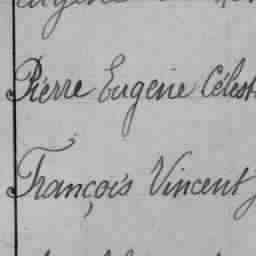 Pierre Eugène Célest
François Vincent